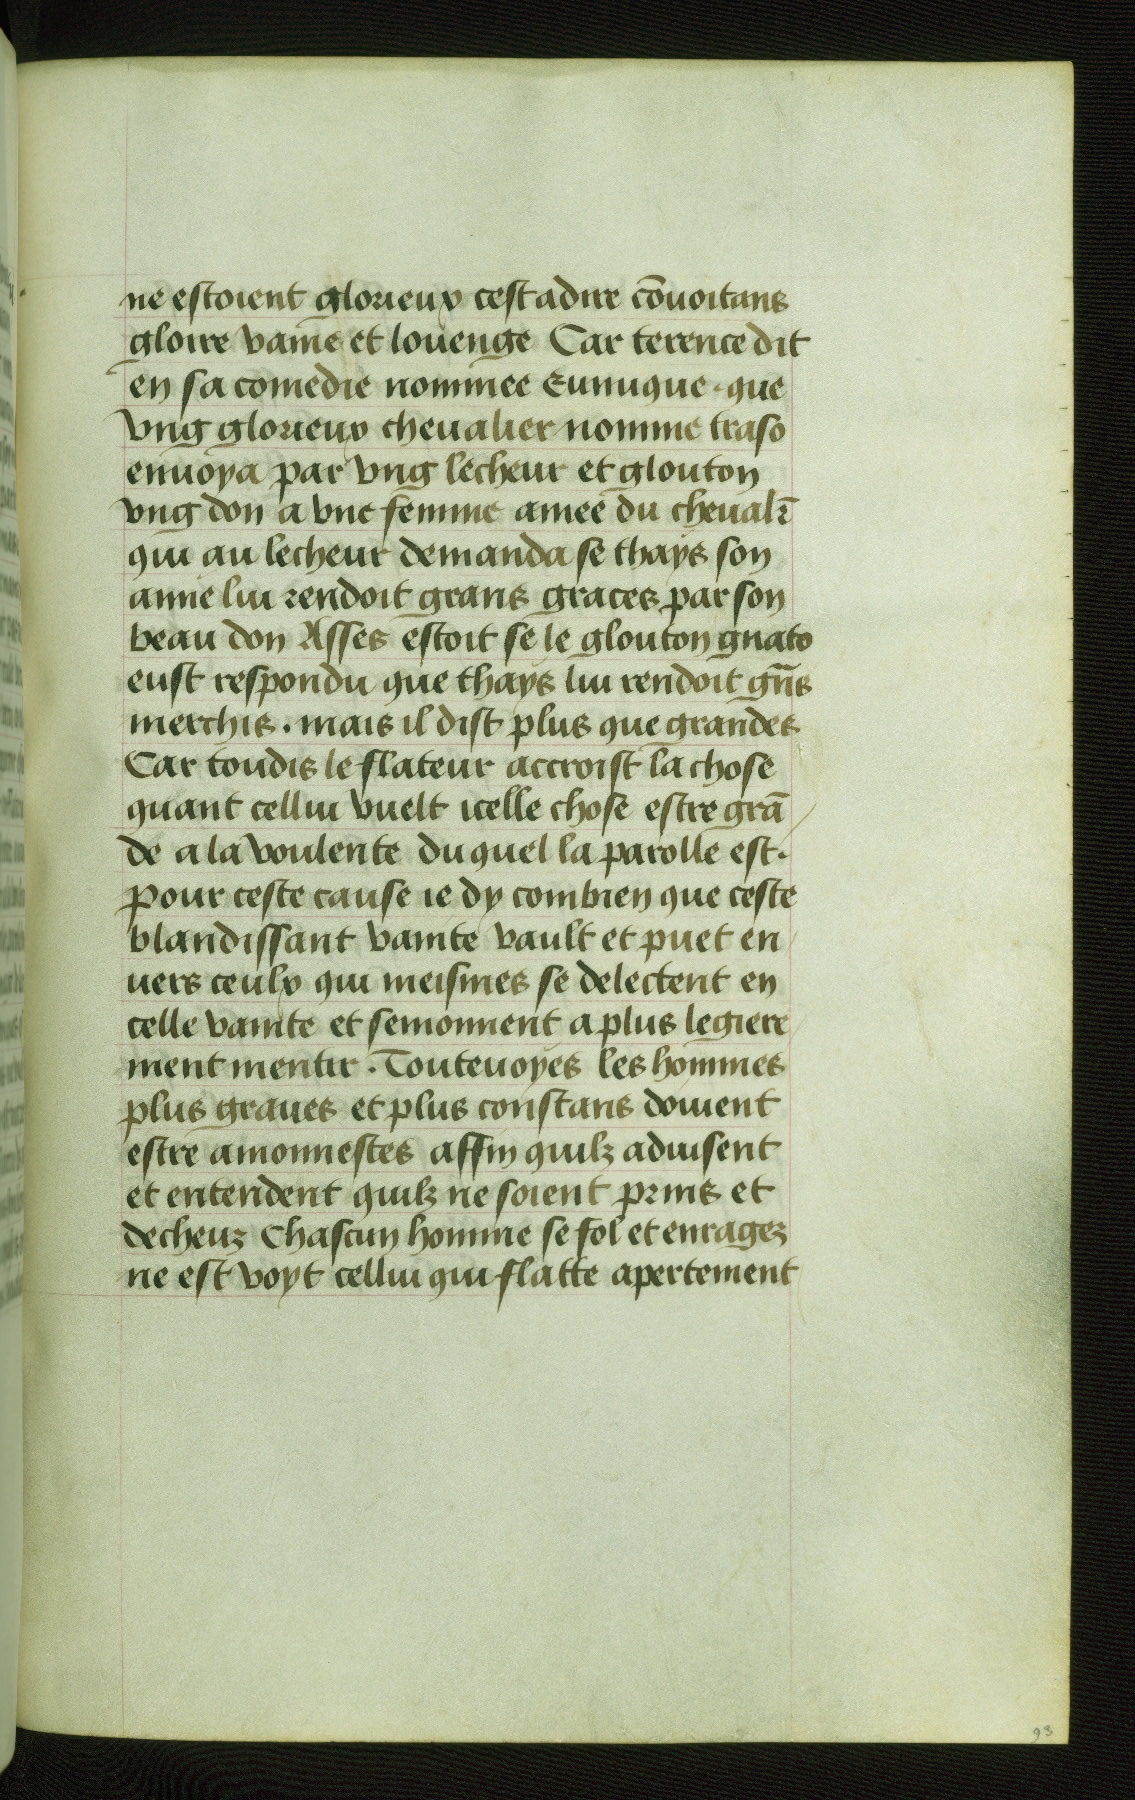 ne estoient glorieux cest adire cōuoitans
gloire vaine et louenge Car terence dit
en sa comedie nommee Eunuque · que
vng glorieux cheualier nomme traso
enuoya par vng lecheur et glouton
vng don a vne femme amee du cheualr̄
qui au lecheur demanda se thays son
amie lui rendoit grans graces par son
beau don Asses estoit se le glouton gnato
eust respondu que thays lui rendoit gn̄s
merchis . mais il dist plus que grandes
Car toudis le flateur accroist la chose
quant cellui vuelt icelle chose estre grā
de a la voulente du quel la parolle est .
Pour ceste cause ie dy combien que ceste
blandissant vainte vault et puet en
uers ceulx qui meismes se delectent en
celle vainte et semonnent a plus legiere
ment mentir . Touteuoyes les hommes
plus graues et plus constans doiuent
estre amonnestes affin quilz aduisent
et entendent quilz ne soient prins et
decheuz Chascun homme se fol et enragez
ne est voyt cellui qui flatte apertement
93